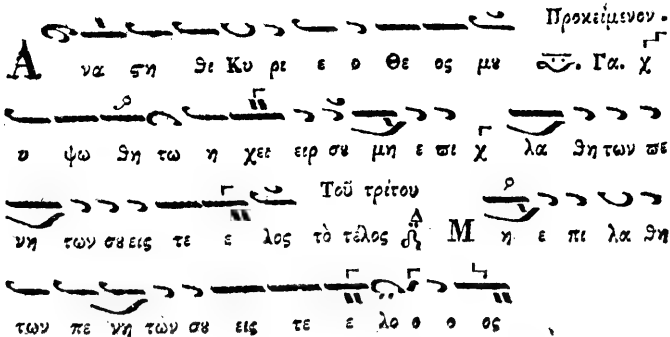 Προκείμενον.
Α να ϛη θι Κυ ρι ε ο Θε ος μȣ Γα. χ
υ ψω θη τω η χει ειρ σȣ μη ε πι χ λα θη των πε
νη των σȣ εις τε ε λος τὸ τέλος Μ η ε πι λα θη
Τοῦ τρίτου
των πε νη τὼν σȣ εις τε ε λο ο ο ος